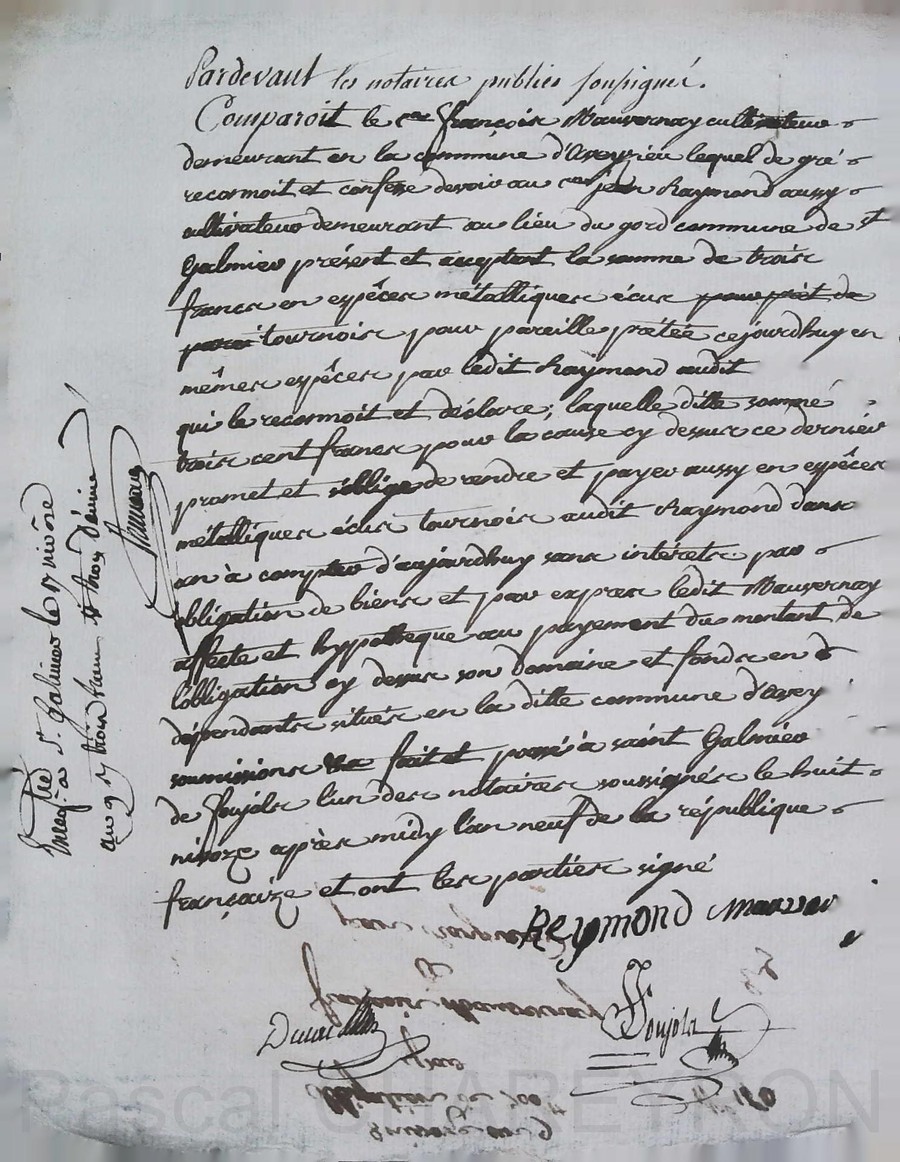 Pardevant les notaires publics soussignés.
Comparoit le cen françois Mauvernay cultivateur
demeurant en la commune d'Aveyzieu lequel de gré
reconnoit et confesse devoir au cen jean Raymond aussy
cultivateur demeurant au lieu du gord commune de st
Galmier présent et acceptant la somme de trois
francs en espêces métalliques écus pour prêt de
tournois pour pareille prêtée cejourdhuy en
mêmes espêces par ledit Raymond audit
qui le reconnoit et déclare; laquelle ditte somme
trois cent francs pour la cause cy dessus ce dernier
promet et s'oblige de rendre et payer aussy en espêces
métalliques écus tournois audit Raymond dans
an à compter d'aujourdhuy sans interets par
obligation de biens et par exprès ledit Mauvernay
affecte et hypotheque au payement du montant de
l'obligation cy dessus son domaine et fonds en
dépendants situés en la ditte commune d'Avey
soumissions fait et passé à saint Galmier
de Soujols l'un des notaires soussignés le huit
nivoze après midy l'an neuf de la république
françoize et ont les parties signé
Reymond Mauver
françois Mauvernay
Soujols
obligation de 300
Enreg. à St. Galmier le 17 nivôse
an 9
Pascal CHAREYRON